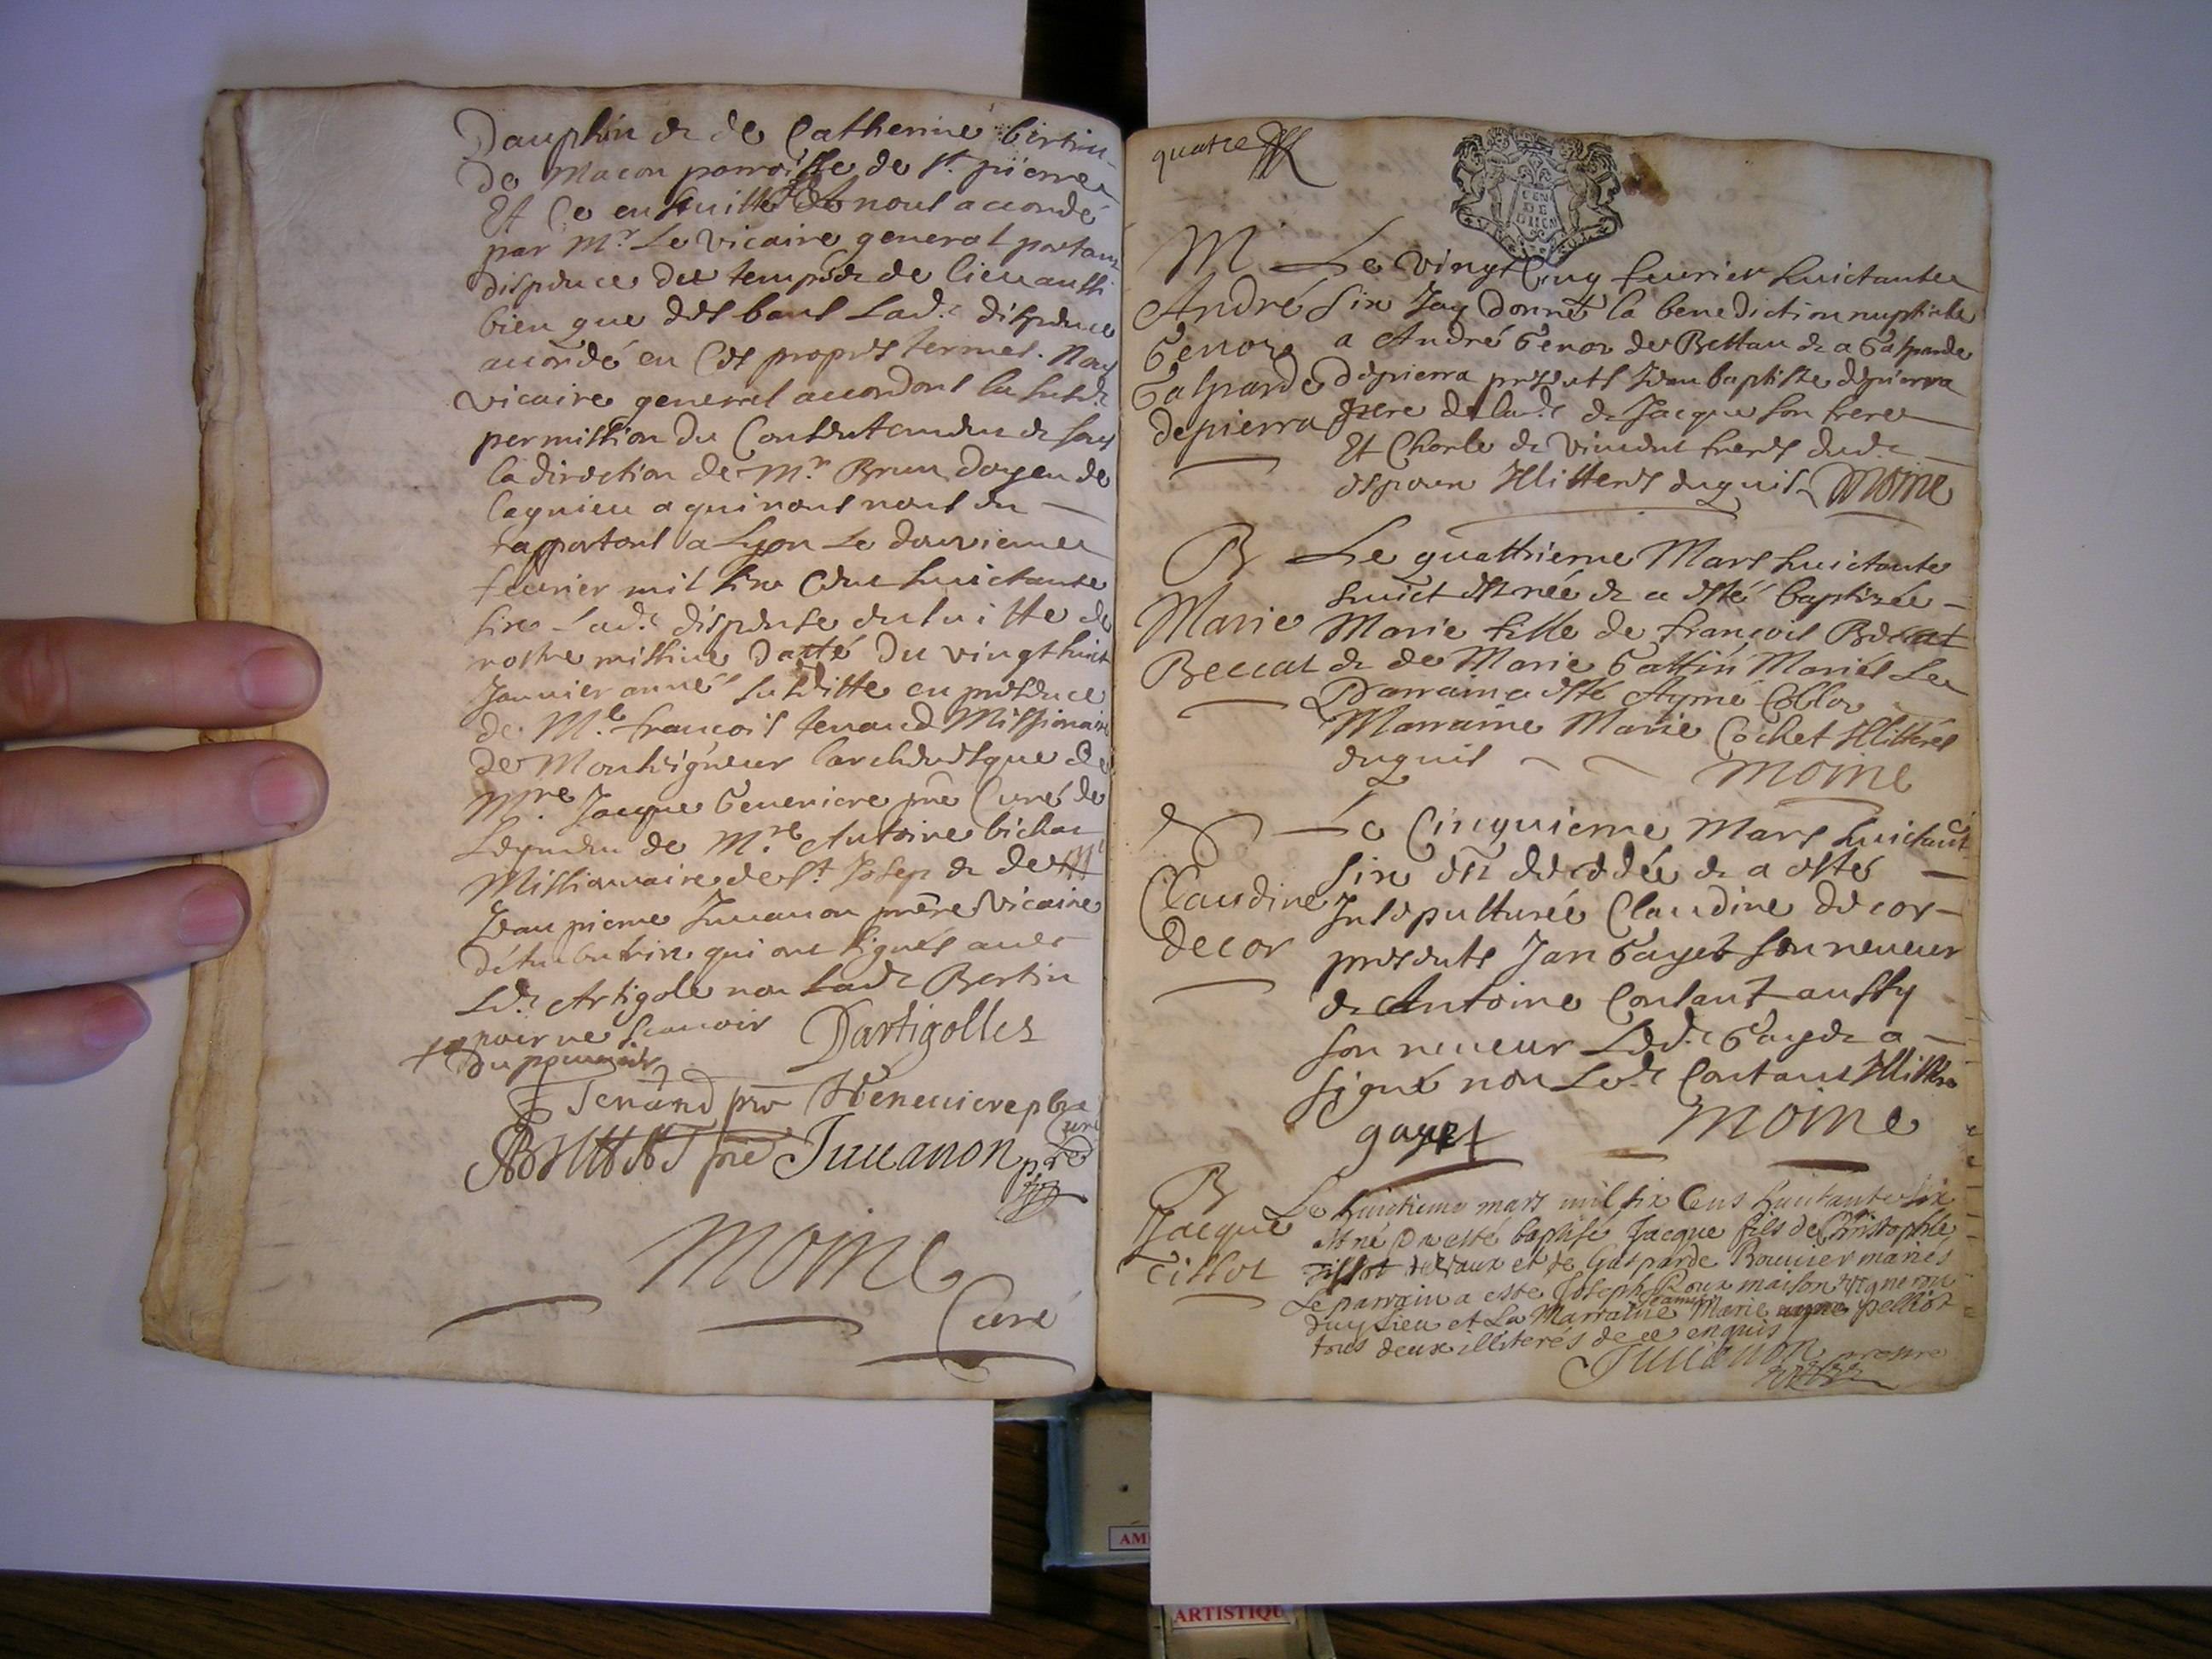 Dauphin & de Catherine bertin
de Macon parroisse de St. pierre
Et Ce ensuitte de nous accordé
par Mr. Le Vicaire general portant
dispence du temps & de lieu aussi
bien que des bans Lad.e dispence
accordé en Ces propres termes. Nous
vicaire general accordons la susd.e
permission du & sous
la direction de Mr. Brun doyen de
lagnieu a qui nous nous en
rapportons a Lyon Le
febvrier mil six Cens huictante
six Lad.e dispense ensuitte de
nostre missive datté du vingt huict
Janvier année susditte en presence
de Me. françois tenand Missionaire
de Monseigneur l'archevesque &
Mre. Jacque Geneviere pre Curé de
de Mre. Antoine bichat
Missionnaire de St. Josep & de Mr
Jean pierre Juuanon prêre Vicaire
qui ont signés avec
Led. Artigole non Lad.e Bertin
pour ne scavoir Dartigolles
Tenand pre Geneviere pbre
curé
pre Juuanon pre
Moine
Curé
quatre
CEN
DE
DUCH
M Le vingt Cinq feurier huictante
André six Jay Donné la benediction nuptiale
Genor a André Genor de Bettan & a Gasparde
Gasparde depierra presents Jean baptiste depierra
depierra pere de lad.e & Jacque son frere
Et Charle & Vincent freres dud.
espoux Illiteres enquis Moine
B Le quattrieme Mars huictante
huict est née & a esté baptizée
Marie Marie fille de françois Beccat
Beccat & de Marie Gattin Mariés Le
Parrain a esté Aymé Collor
Marraine Marie Cochet Illiterés
enquis Moine
Le Cinquieme Mars huictant
six est decedée & a esté
Claudine Insepulturée Claudine decor
decor presents Jan Gayet son neueur
& Antoine Contant aussy
son neueur Led. Gayet a
signé non Led. Contant Illittere
gayet Moine
B Le huictieme mars mil six Cens huictante six
Jacque est né & a esté baptisé Jacque fils de Christophle
Tissot Tissot de Vaux et de Gasparde Bouuier mariés
Le parrain a esté Joseph Roux maison vigneron
duy Lieu et La Marraine Marie pelliot
tous deux illiterés de ce enquis
Juuanon prestre
AM
ARTISTIQU